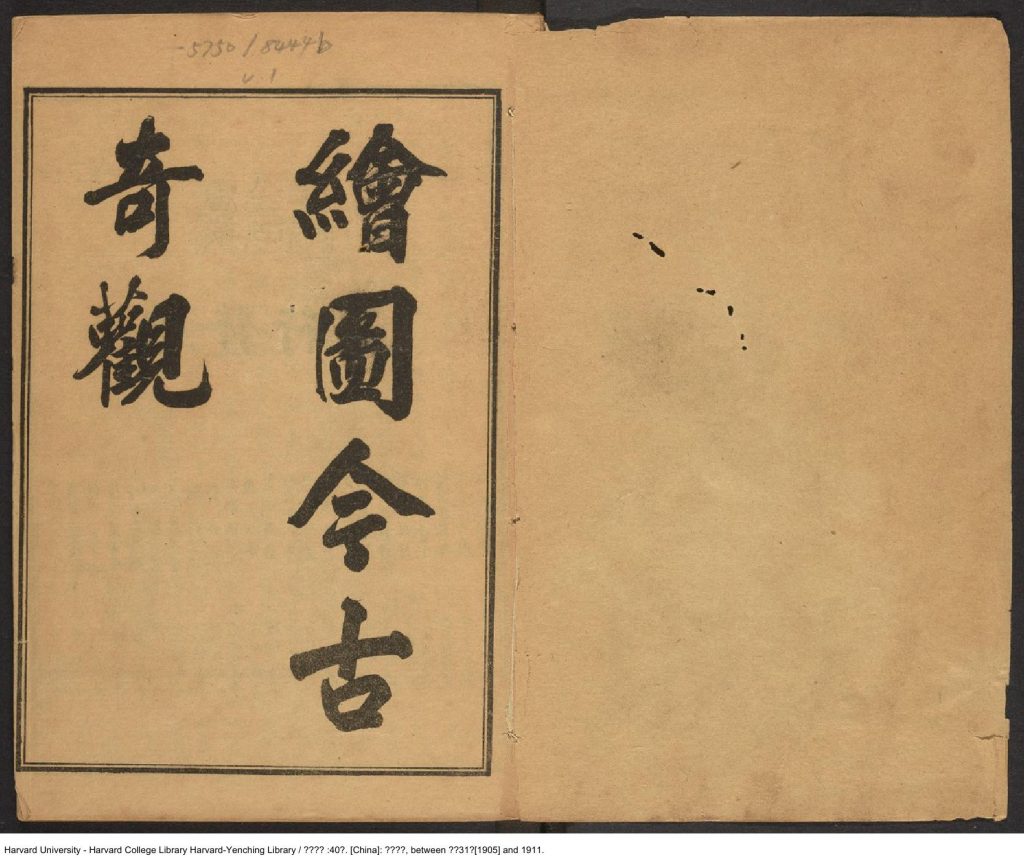 5750 / 8244b
v. 1
繪圖今古
奇觀
Harvard University - Harvard College Library Harvard-Yenching Library / ???? :40?. [China]: ????, between ??31?[1905] and 1911.